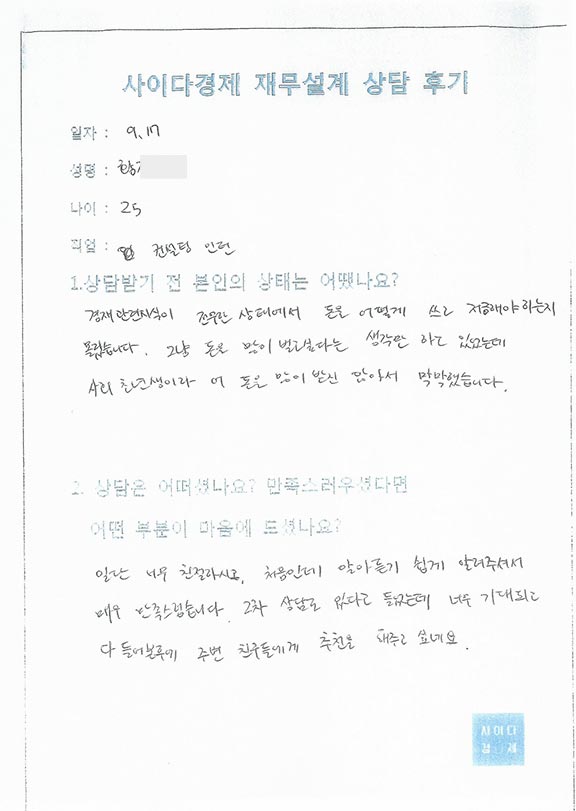 사이다경제 재무설계 상담 후기
일자 : 9. 17
성명 :
나이 : 25
직업 : 컨설팅 인턴
1.상담받기 전 본인의 상태는 어땠나요?
경제관련지식이 전무한 상태에서 돈을 어떻게 쓰고 저금해야하는지
몰랐습니다. 그냥 돈은 많이 벌고싶다는 생각만 하고 있었는데
사회초년생이라 더 돈을 많이 받진 않아서 막막했습니다.
2. 상담은 어떠셨나요? 만족스러우셨다면
어떤 부분이 마음에 드셨나요?
일단 너무 친절하시고, 처음인데 알아듣기 쉽게 알려주셔서
매우 만족스럽습니다. 2차 상담도 있다고 들었는데 너무 기대되고
다 들어본후에 주변 친구들에게 추천을 해주고 싶네요.
사이다
경제